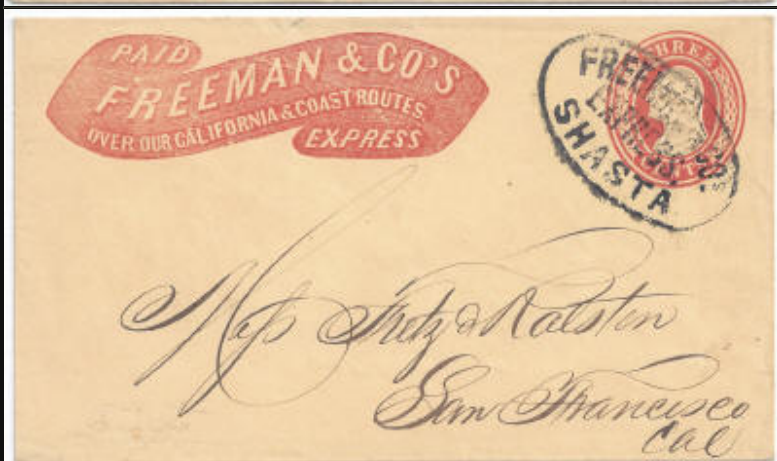 PAID
FREEMAN & CO'S
OVER OUR CALIFORNIA & COAST ROUTES
EXPRESS
THREE
FREEMAN & CO'S
EXPRESS.
SHASTA
Mess Fretz & Ralston
San Francisco
Cal